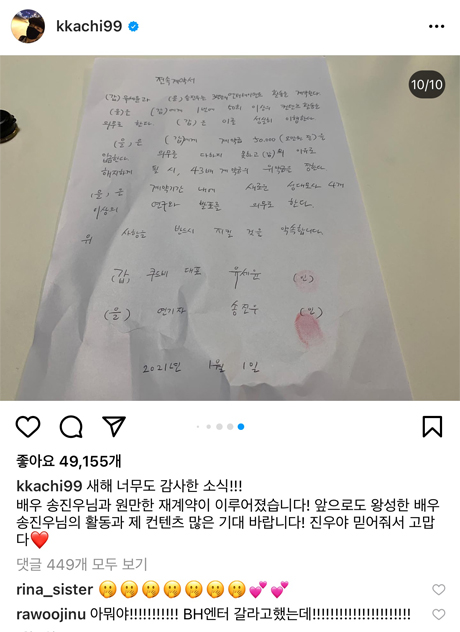 kkachi99
10/10
전속계약서
(갑) 유세윤과 (을) 송진우는
(을)은 (갑)에게 1년에 이상
의무로 한다. (갑)은 이를 성실히 이행한다.
(을)은 (갑)에게 계약금 50,000 (오만원)을
입금한다. 의무를 다하지 못하고 (갑)의
해지하게 될 시, 43배
(을)은 계약기간 내에 새로운 성대모사 4개
이상의 연구와 발표를 의무로 한다.
위 사항을 반드시 지킬 것을 약속합니다.
(갑) 쿠드비 대표 유세윤 (인)
(을) 연기자 송진우 (인)
2021년 1월 1일
좋아요 49,155개
kkachi99 새해 너무도 감사한 소식!!!
배우 송진우님과 원만한 재계약이 이루어졌습니다! 앞으로도 왕성한 배우
송진우님의 활동과 제 컨텐츠 많은 기대 바랍니다! 진우야 믿어줘서 고맙
다❤️
댓글 449개 모두 보기
rina_sister 🤭🤭🤭🤭🤭🤭🤭💕💕
rawoojinu 아뭐야!!!!!!!!!!! BH엔터 갈라고했는데!!!!!!!!!!!!!!!!!!!!!!